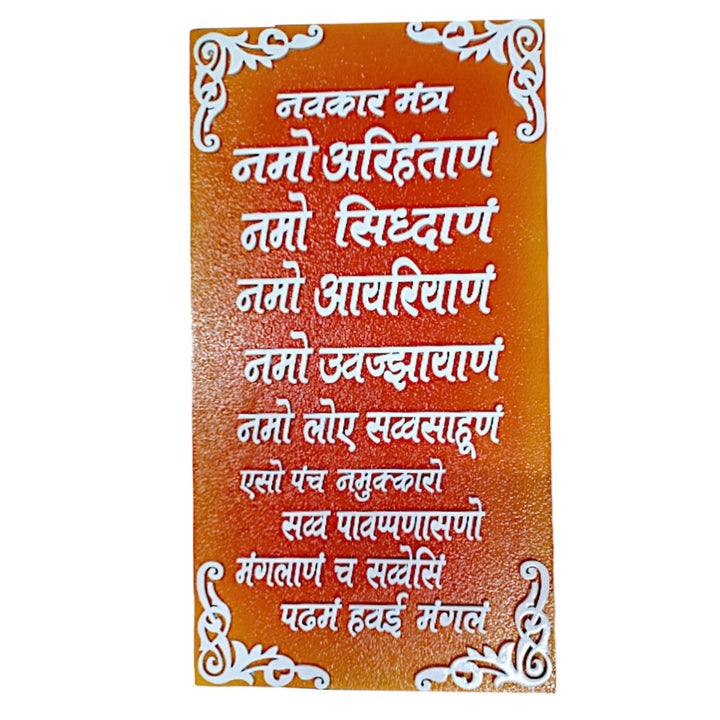 नवकार मंत्र
नमो अरिहंताणं
नमो सिध्दाणं
नमो आयरियाणं
नमो उवज्झायाणं
नमो लोए सव्वसाहूणं
एसो पंच नमुक्कारो
सव्व पावप्पणासणो
मंगलाणं च सव्वेसिं
पढमं हवई मंगलं